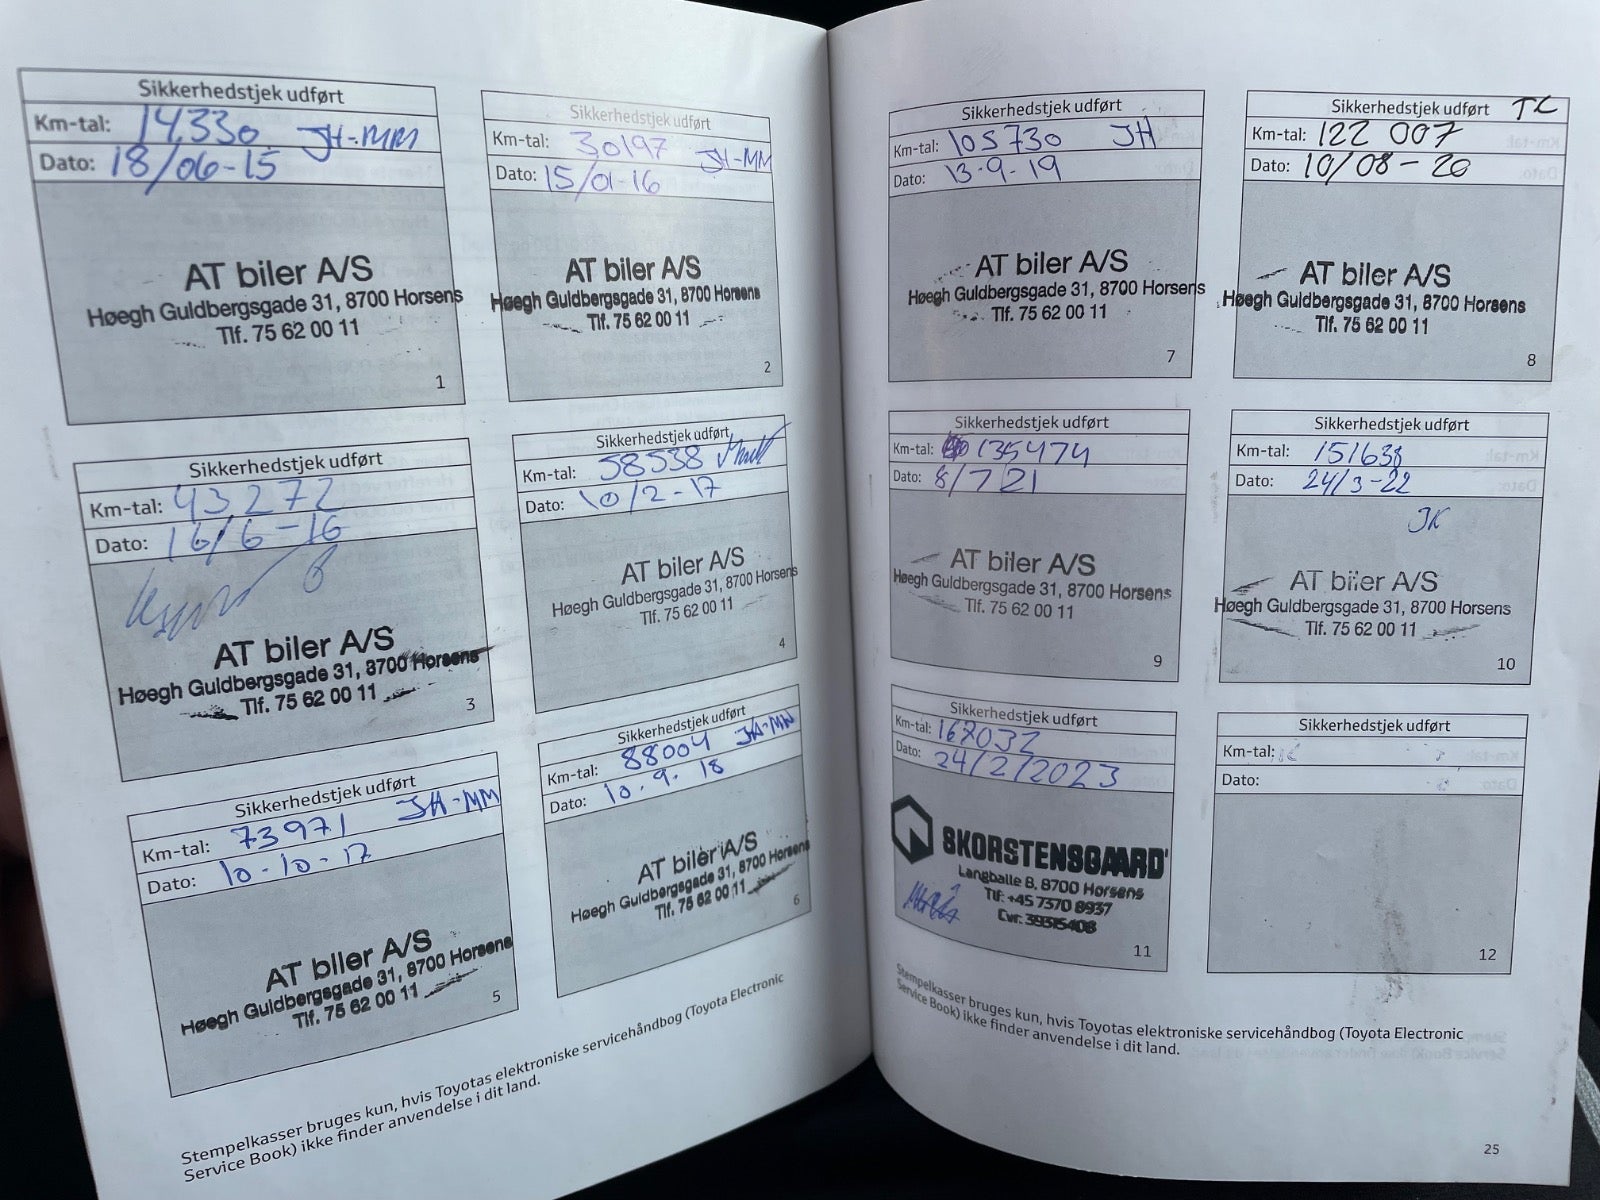 Sikkerhedstjek udført
Km-tal: 14.330 JH-MM
Dato: 18/06-15
AT biler A/S
Høegh Guldbergsgade 31, 8700 Horsens
Tlf. 75 62 00 11
1
Sikkerhedstjek udført
Km-tal: 30197 JH-MM
Dato: 15/01-16
AT biler A/S
Høegh Guldbergsgade 31, 8700 Horsens
Tlf. 75 62 00 11
2
Sikkerhedstjek udført
Km-tal: 43.272
Dato: 16/6-16
AT biler A/S
Høegh Guldbergsgade 31, 8700 Horsens
Tlf. 75 62 00 11
3
Sikkerhedstjek udført
Km-tal: 58538
Dato: 10/2-17
AT biler A/S
Høegh Guldbergsgade 31, 8700 Horsens
Tlf. 75 62 00 11
4
Sikkerhedstjek udført
Km-tal: 73971 JH-MM
Dato: 10-10-17
AT biler A/S
Høegh Guldbergsgade 31, 8700 Horsens
Tlf. 75 62 00 11
5
Sikkerhedstjek udført
Km-tal: 88004 JH-MM
Dato: 10.9.18
AT biler A/S
Høegh Guldbergsgade 31, 8700 Horsens
Tlf. 75 62 00 11
6
Stempelkasser bruges kun, hvis Toyotas elektroniske servicehåndbog (Toyota Electronic
Service Book) ikke finder anvendelse i dit land.
Sikkerhedstjek udført
Km-tal: 105730 JH
Dato: 13-9-19
AT biler A/S
Høegh Guldbergsgade 31, 8700 Horsens
Tlf. 75 62 00 11
7
Sikkerhedstjek udført TC
Km-tal: 122 007
Dato: 10/08-20
AT biler A/S
Høegh Guldbergsgade 31, 8700 Horsens
Tlf. 75 62 00 11
8
Sikkerhedstjek udført
Km-tal: 135474
Dato: 8/7 21
AT biler A/S
Høegh Guldbergsgade 31, 8700 Horsens
Tlf. 75 62 00 11
9
Sikkerhedstjek udført
Km-tal: 151638
Dato: 24/3-22
JK
AT biler A/S
Høegh Guldbergsgade 31, 8700 Horsens
Tlf. 75 62 00 11
10
Sikkerhedstjek udført
Km-tal: 167032
Dato: 24/2/2023
SKORSTENSGAARD
Langballe 8, 8700 Horsens
Tlf: +45 7370 8937
Cvr: 39315408
11
Sikkerhedstjek udført
Km-tal:
Dato:
12
Stempelkasser bruges kun, hvis Toyotas elektroniske servicehåndbog (Toyota Electronic
Service Book) ikke finder anvendelse i dit land.
25